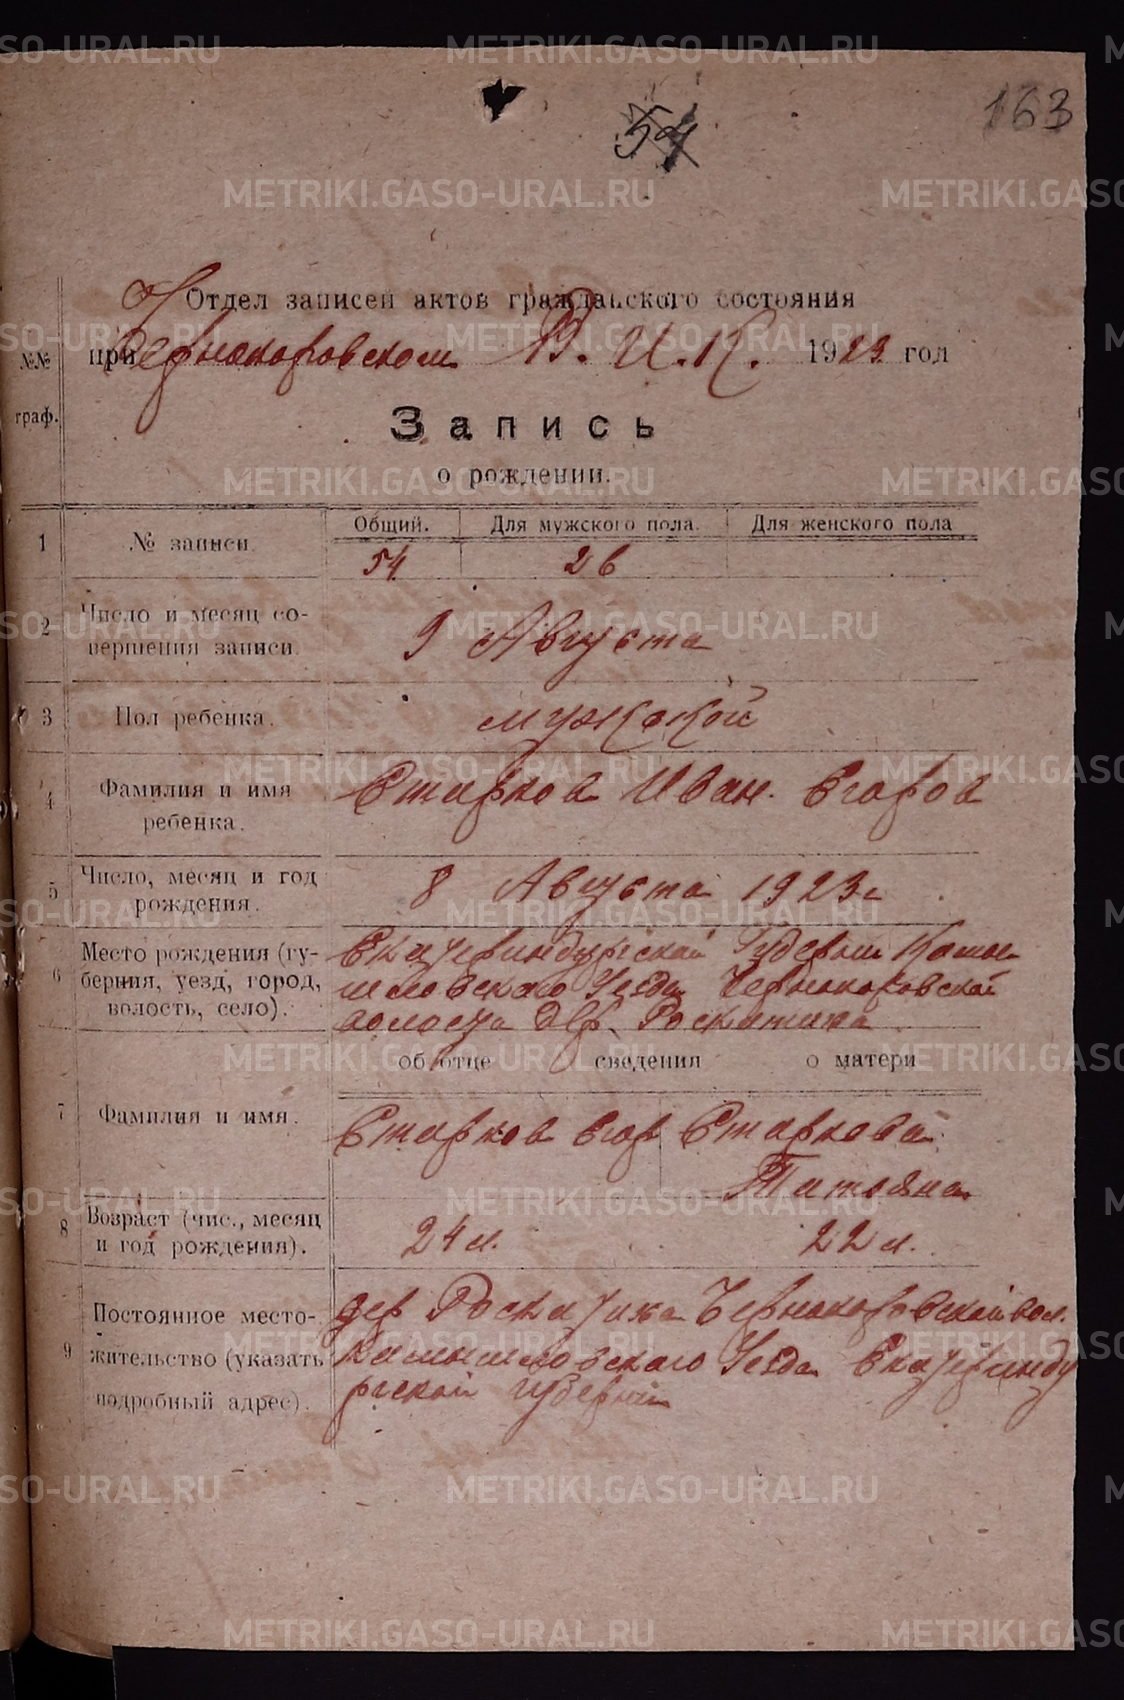 163
54
Отдел записей актов гражданского состояния
при Чернокоровском В. И. К. 1923 год
№№ граф.
Запись
о рождении.
Общий. Для мужского пола. Для женского пола
1 № записи. 54 26
2 Число и месяц со-
вершения записи. 9 Августа
3 Пол ребенка. мужской
4 Фамилия и имя
ребенка. Старков Иван. Егоров
5 Число, месяц и год
рождения. 8 Августа 1923 г
6 Место рождения (гу-
берния, уезд, город,
волость, село).
Екатеринбургской Губернии Камы
шловского Уезда Чернокоровской
волости дер. Роскатиха
об отце сведения о матери
7 Фамилия и имя. Старков Егор Старкова
Татьяна
8 Возраст (чис., месяц
и год рождения). 24 л. 22 л.
9 Постоянное место-
жительство (указать
подробный адрес).
дер Роскатиха Чернокоровской вол.
Камышловского Уезда Екатеринбу
ргской губернии
METRIKI.GASO-URAL.RU